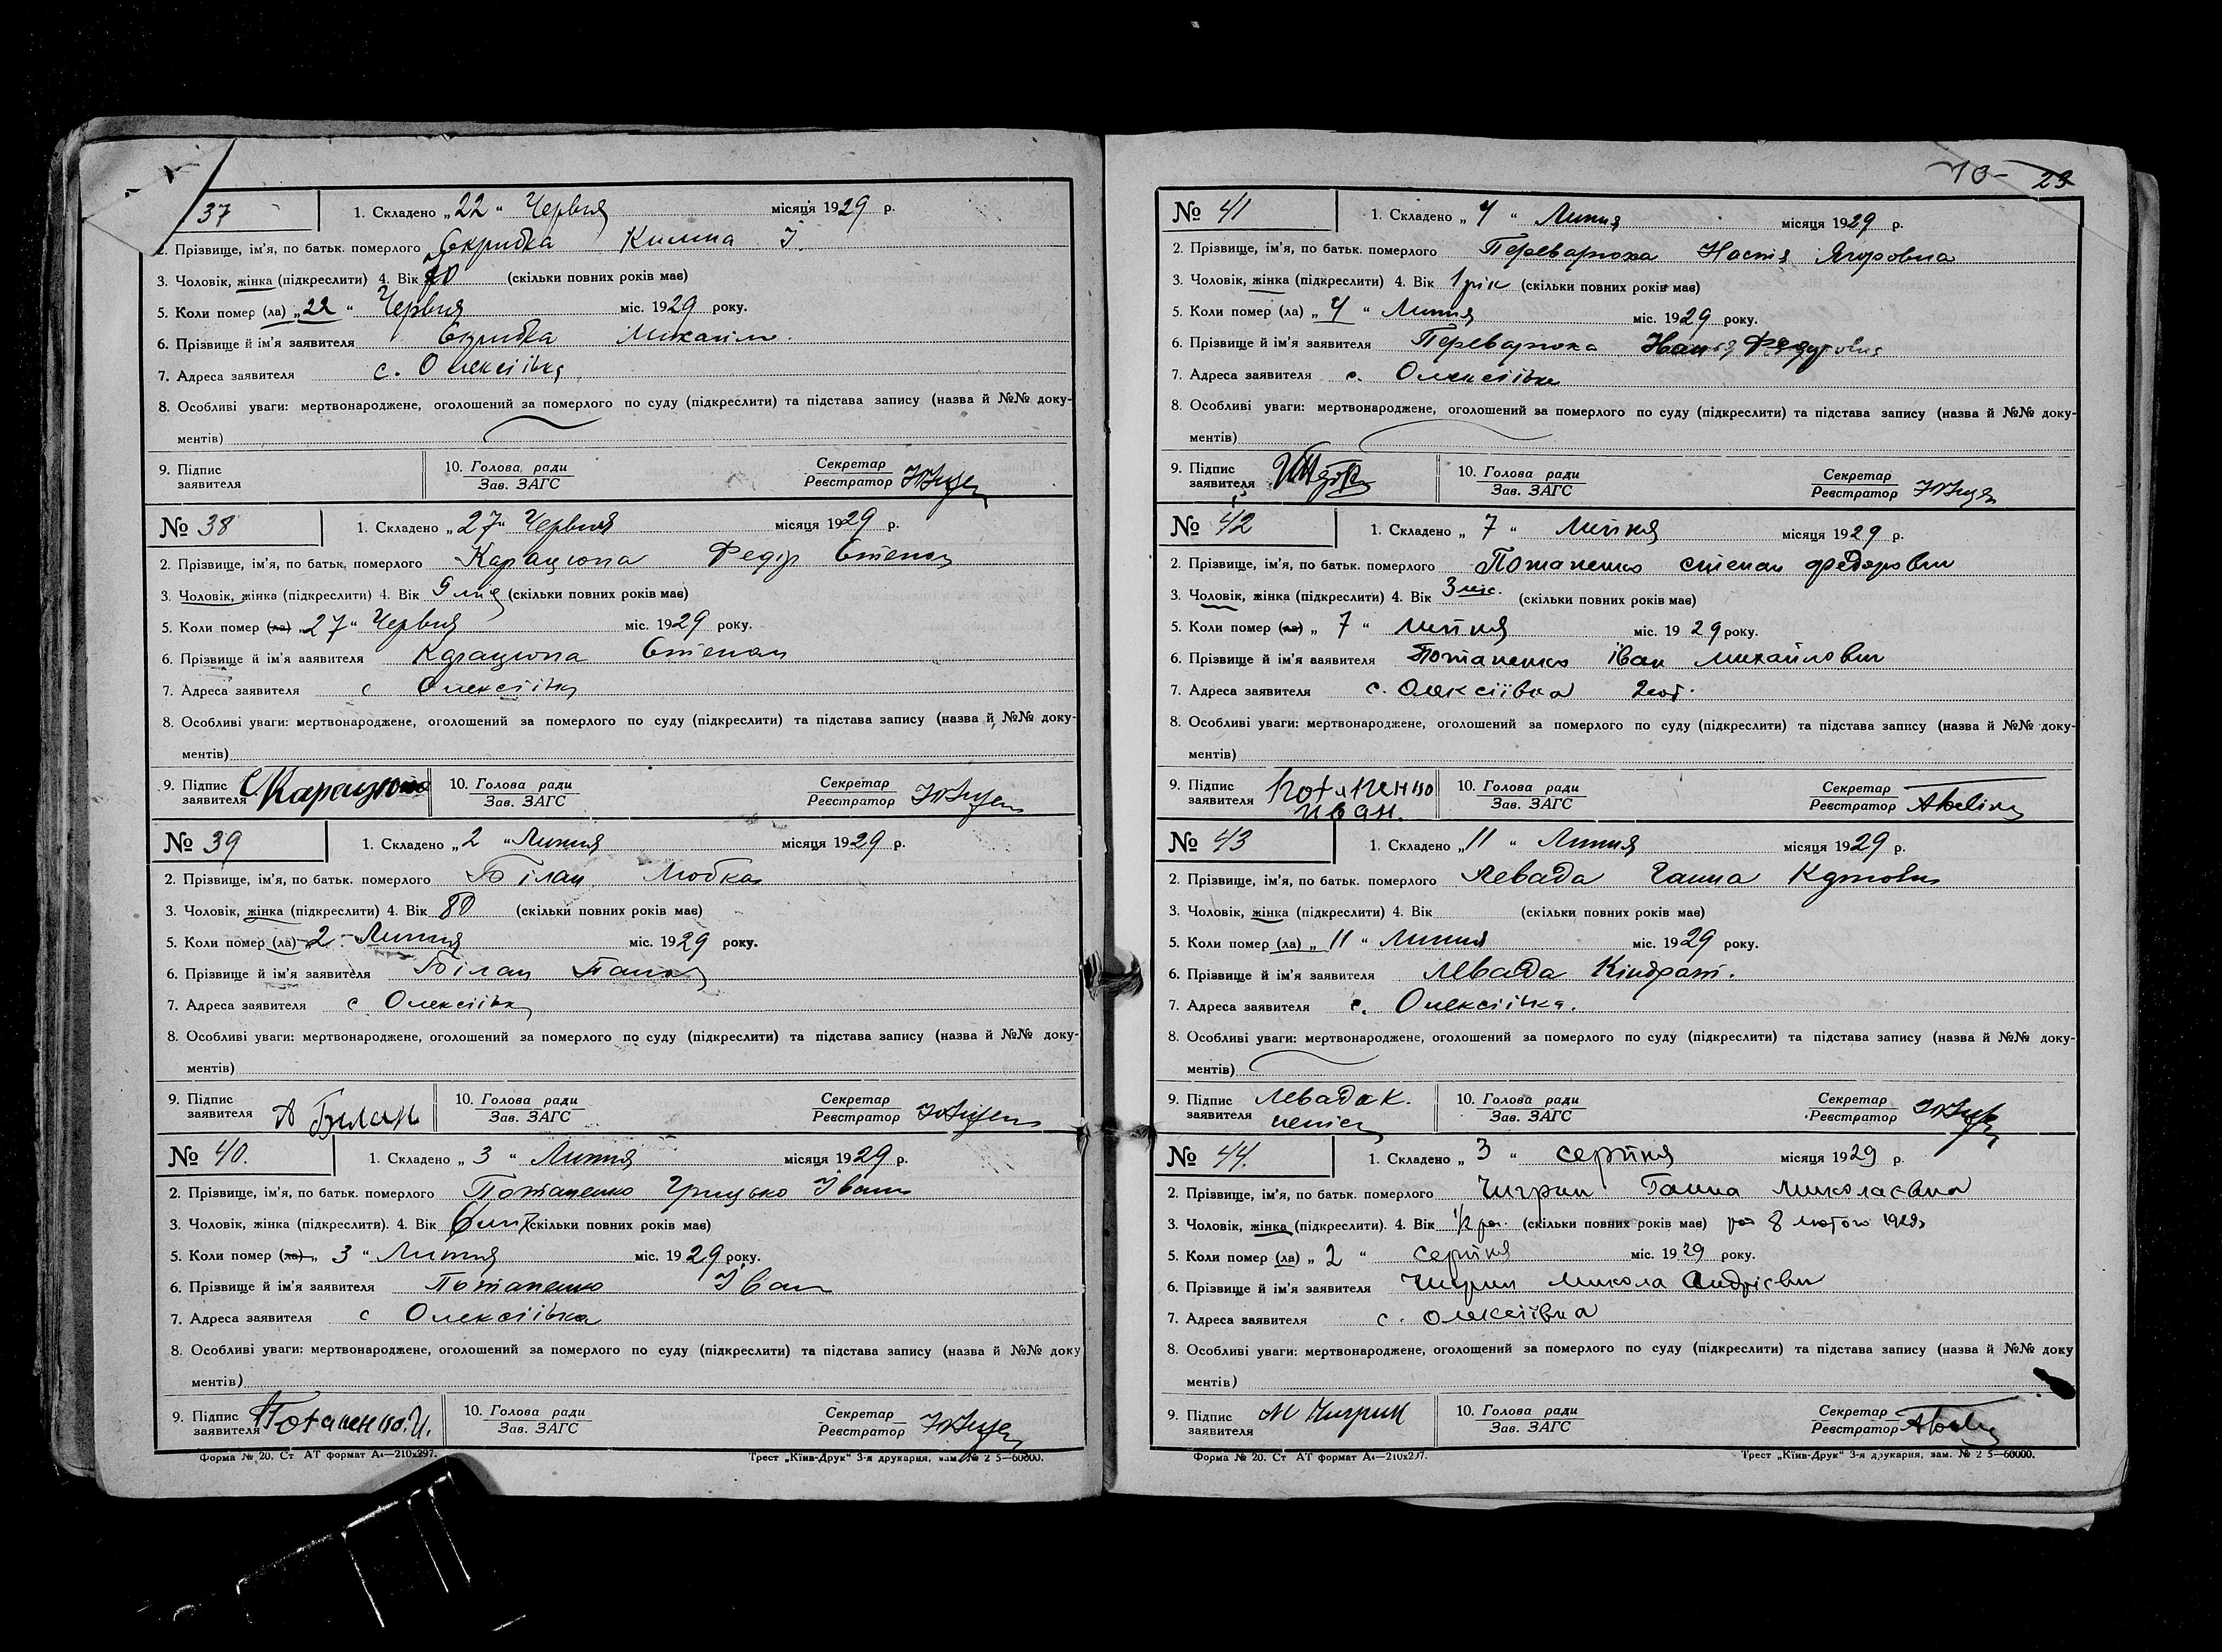 37 1. Складено „22“ Червня місяця 1929 р.
2. Прізвище, ім'я, по батьк. померлого Скрибка І.
3. Чоловік, жінка (підкреслити) 4. Вік (скільки повних років має)
5. Коли помер (ла) „22“ Червня міс. 1929 року.
6. Прізвище й ім'я заявителя Скрибка Михайло.
7. Адреса заявителя с. Олексіївка
8. Особливі уваги: мертвонароджене, оголошений за померлого по суду (підкреслити) та підстава запису (назва й №№ доку-
ментів)
9. Підпис заявителя 10. Голова ради Зав. ЗАГС Секретар Реєстратор
№ 38 1. Складено „27“ Червня місяця 1929 р.
2. Прізвище, ім'я, по батьк. померлого Карацюпа Федір Степан
3. Чоловік, жінка (підкреслити) 4. Вік 9 (скільки повних років має)
5. Коли помер (ла) „27“ Червня міс. 1929 року.
6. Прізвище й ім'я аявителя Карацюпа Степан
7. Адреса заявителя с Олексіївка
8. Особливі уваги: мертвонароджене, оголошений за померлого по суду (підкреслити) та підстава запису (назва й №№ доку-
ментів)
9. Підпис заявителя С Карацюпа 10. Голова ради Зав. ЗАГС Секретар Реєстратор
№ 39 1. Складено „2“ Липня місяця 1929 р.
2. Прізвище, ім'я, по батьк. померлого Білан Любка
3. Чоловік, жінка (підкреслити) 4. Вік 80 (скільки повних років має)
5. Коли помер (ла) „2 Липня міс. 1929 року.
6. Прізвище й ім'я заявителя Білан
7. Адреса заявителя с Олексіївка
8. Особливі уваги: мертвонароджене, оголошений за померлого по суду (підкреслити) та підстава запису (назва й №№ доку-
ментів)
9. Підпис заявителя Билан 10. Голова ради Зав. ЗАГС Секретар Реєстратор
№ 40. 1. Складено „3“ Липня місяця 1929 р.
2. Прізвище, ім'я, по батьк. померлого Потапенко Грицько Іван
3. Чоловік, жінка (підкреслити). 4. Вік 6 (скільки повних років має)
5. Коли помер (ла) „3“ Липня міс. 1929 року.
6. Прізвище й ім'я заявителя Потапенко Іван
7. Адреса заявителя с Олексіївка
8. Особливі уваги: мертвонароджене, оголошений за померлого по суду (підкреслити) та підстава запису (назва й №№ доку
ментів)
9. Підпис заявителя Потапенко.И. 10. Голова ради Зав. ЗАГС Секретар Реєстратор
Форма № 20. Ст АТ формат А4—210х297. Трест „Київ-Друк“ 3-я друкарня, зам. № 2 5—60000.
23
№ 41 1. Складено „4“ Липня місяця 1929 р.
2. Прізвище, ім'я, по батьк. померлого Переварюха Настя Ягоровна
3. Чоловік, жінка (підкреслити) 4. Вік 1 рік (скільки повних років має)
5. Коли помер (ла) „4“ Липня міс. 1929 року.
6. Прізвище й ім'я заявителя Переварюха
7. Адреса заявителя с. Олексіївка
8. Особливі уваги: мертвонароджене, оголошений за померлого по суду (підкреслити) та підстава запису (назва й №№ доку-
ментів)
9. Підпис заявителя 10. Голова ради Зав. ЗАГС Секретар Реєстратор
№ 42 1. Складено „7“ липня місяця 1929 р.
2. Прізвище, ім'я, по батьк. померлого Потапенко степан федорович
3. Чоловік, жінка (підкреслити) 4. Вік 3 міс. (скільки повних років має)
5. Коли помер (ла) „7“ липня міс. 1929 року.
6. Прізвище й ім'я аявителя Потапенко іван михайлович
7. Адреса заявителя с. Олексіївка
8. Особливі уваги: мертвонароджене, оголошений за померлого по суду (підкреслити) та підстава запису (назва й №№ доку-
ментів)
9. Підпис заявителя Потапенко Иван. 10. Голова ради Зав. ЗАГС Секретар Реєстратор
№ 43 1. Складено „11“ Липня місяця 1929 р.
2. Прізвище, ім'я, по батьк. померлого Левада Ганна
3. Чоловік, жінка (підкреслити) 4. Вік (скільки повних років має)
5. Коли помер (ла) „11“ Липня міс. 1929 року.
6. Прізвище й ім'я заявителя Левада Кіндрат.
7. Адреса заявителя с. Олексіївка.
8. Особливі уваги: мертвонароджене, оголошений за померлого по суду (підкреслити) та підстава запису (назва й №№ доку-
ментів)
9. Підпис заявителя Левада К. 10. Голова ради Зав. ЗАГС Секретар Реєстратор
№ 44. 1. Складено „3“ серпня місяця 1929 р.
2. Прізвище, ім'я, по батьк. померлого Чигрин Ганна Миколаєвна
3. Чоловік, жінка (підкреслити). 4. Вік 1/2 (скільки повних років має) 8 лютого 1929
5. Коли помер (ла) „2“ серпня міс. 1929 року.
6. Прізвище й ім'я заявителя Чигрин Микола Андрієвич
7. Адреса заявителя с. Олексіївка
8. Особливі уваги: мертвонароджене, оголошений за померлого по суду (підкреслити) та підстава запису (назва й №№ доку
ментів)
9. Підпис заявителя М Чигрин 10. Голова ради Зав. ЗАГС Секретар Реєстратор
Форма № 20. Ст АТ формат А4—210х297. Трест „Київ-Друк“ 3-я друкарня, зам. № 2 5—60000.